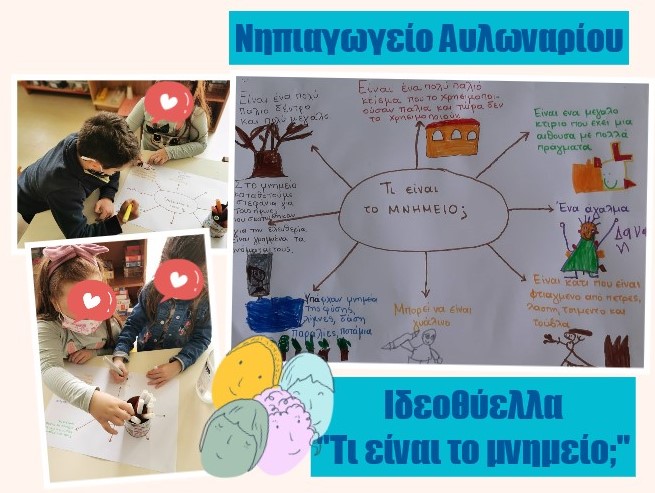 Νηπιαγωγείο Αυλωναρίου
Είναι ένα πολύ
παλιο δέντρο
και πολύ μεγάλο
Είναι ένα πολύ παλιό
κτίσμα που το χρησιμοποι-
ούσαν παλιά και τώρα δεν
το χρησιμοποιούν
Είναι ενα μεγάλο
κτίριο που έχει μια
αίθουσα με πολλά
πράγματα
Στο μνημείο
καταθέτουμε
στεφάνια για
που σκοτώθηκαν
για την ελευθερία
είναι γραμμένα τα
ονόματα τους.
Τι είναι
το ΜΝΗΜΕΙΟ;
Ένα άγαλμα
Υπάρχουν μνημεία
της φύσης,
λίμνες, δάση
παραλίες, ποτάμια
Μπορεί να είναι
γυάλινο
Είναι κάτι που είναι
φτιαγμένο από πέτρες,
λάσπη, τσιμέντο και
τούβλα
Ιδεοθύελλα
"Τι είναι το μνημείο;"